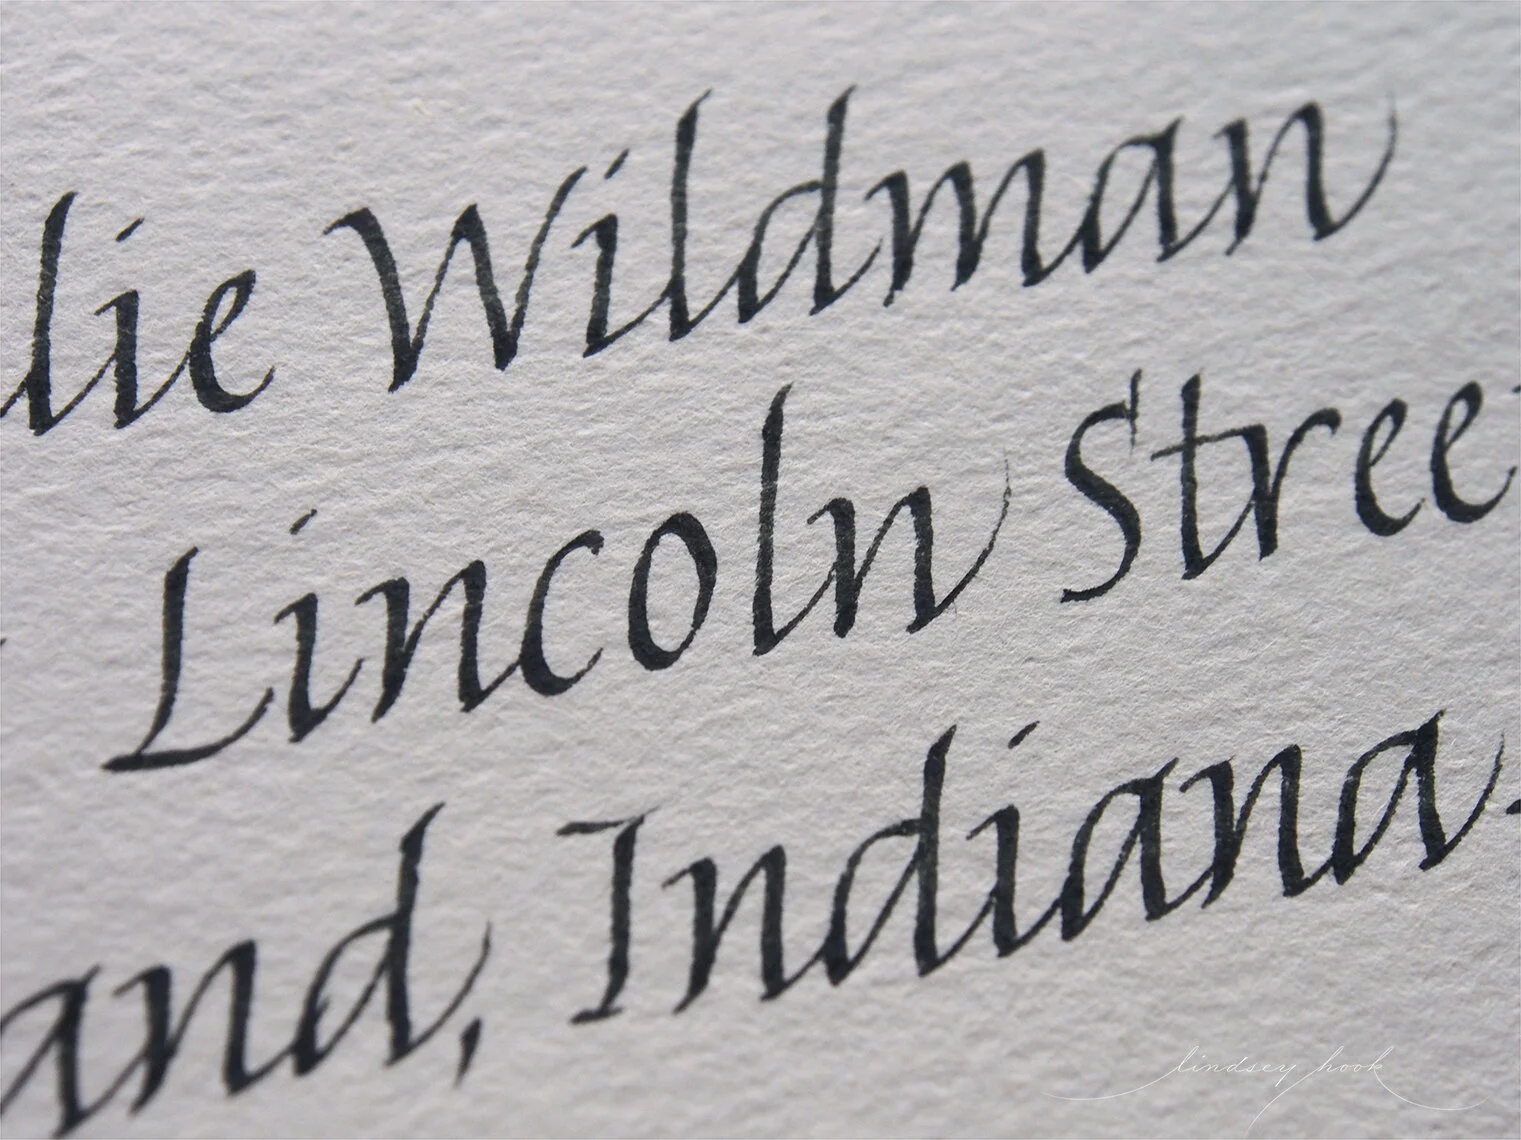 lie Wildman
Lincoln Stree
and, Indiana
lindsey hook